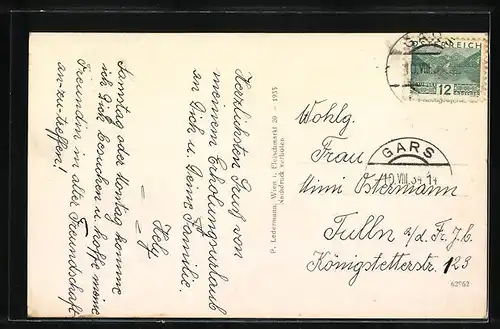 Herzlichsten Gruß von
meinem Erholungsurlaub
an Dich u. Deine Familie.
Samstag oder Montag komme
ich Dich besuchen u. hoffe meine
Freundin in alter Freundschaft
an-zu-treffen!
P. Ledermann, Wien I, Fleischmarkt 20 - 1935
Nachdruck verboten
ÖSTERREICH
12
GARS
10.VIII.34.14
Wohlg.
Frau
Mimi Ostermann
Tulln a/d.
Königstetterstr. 123